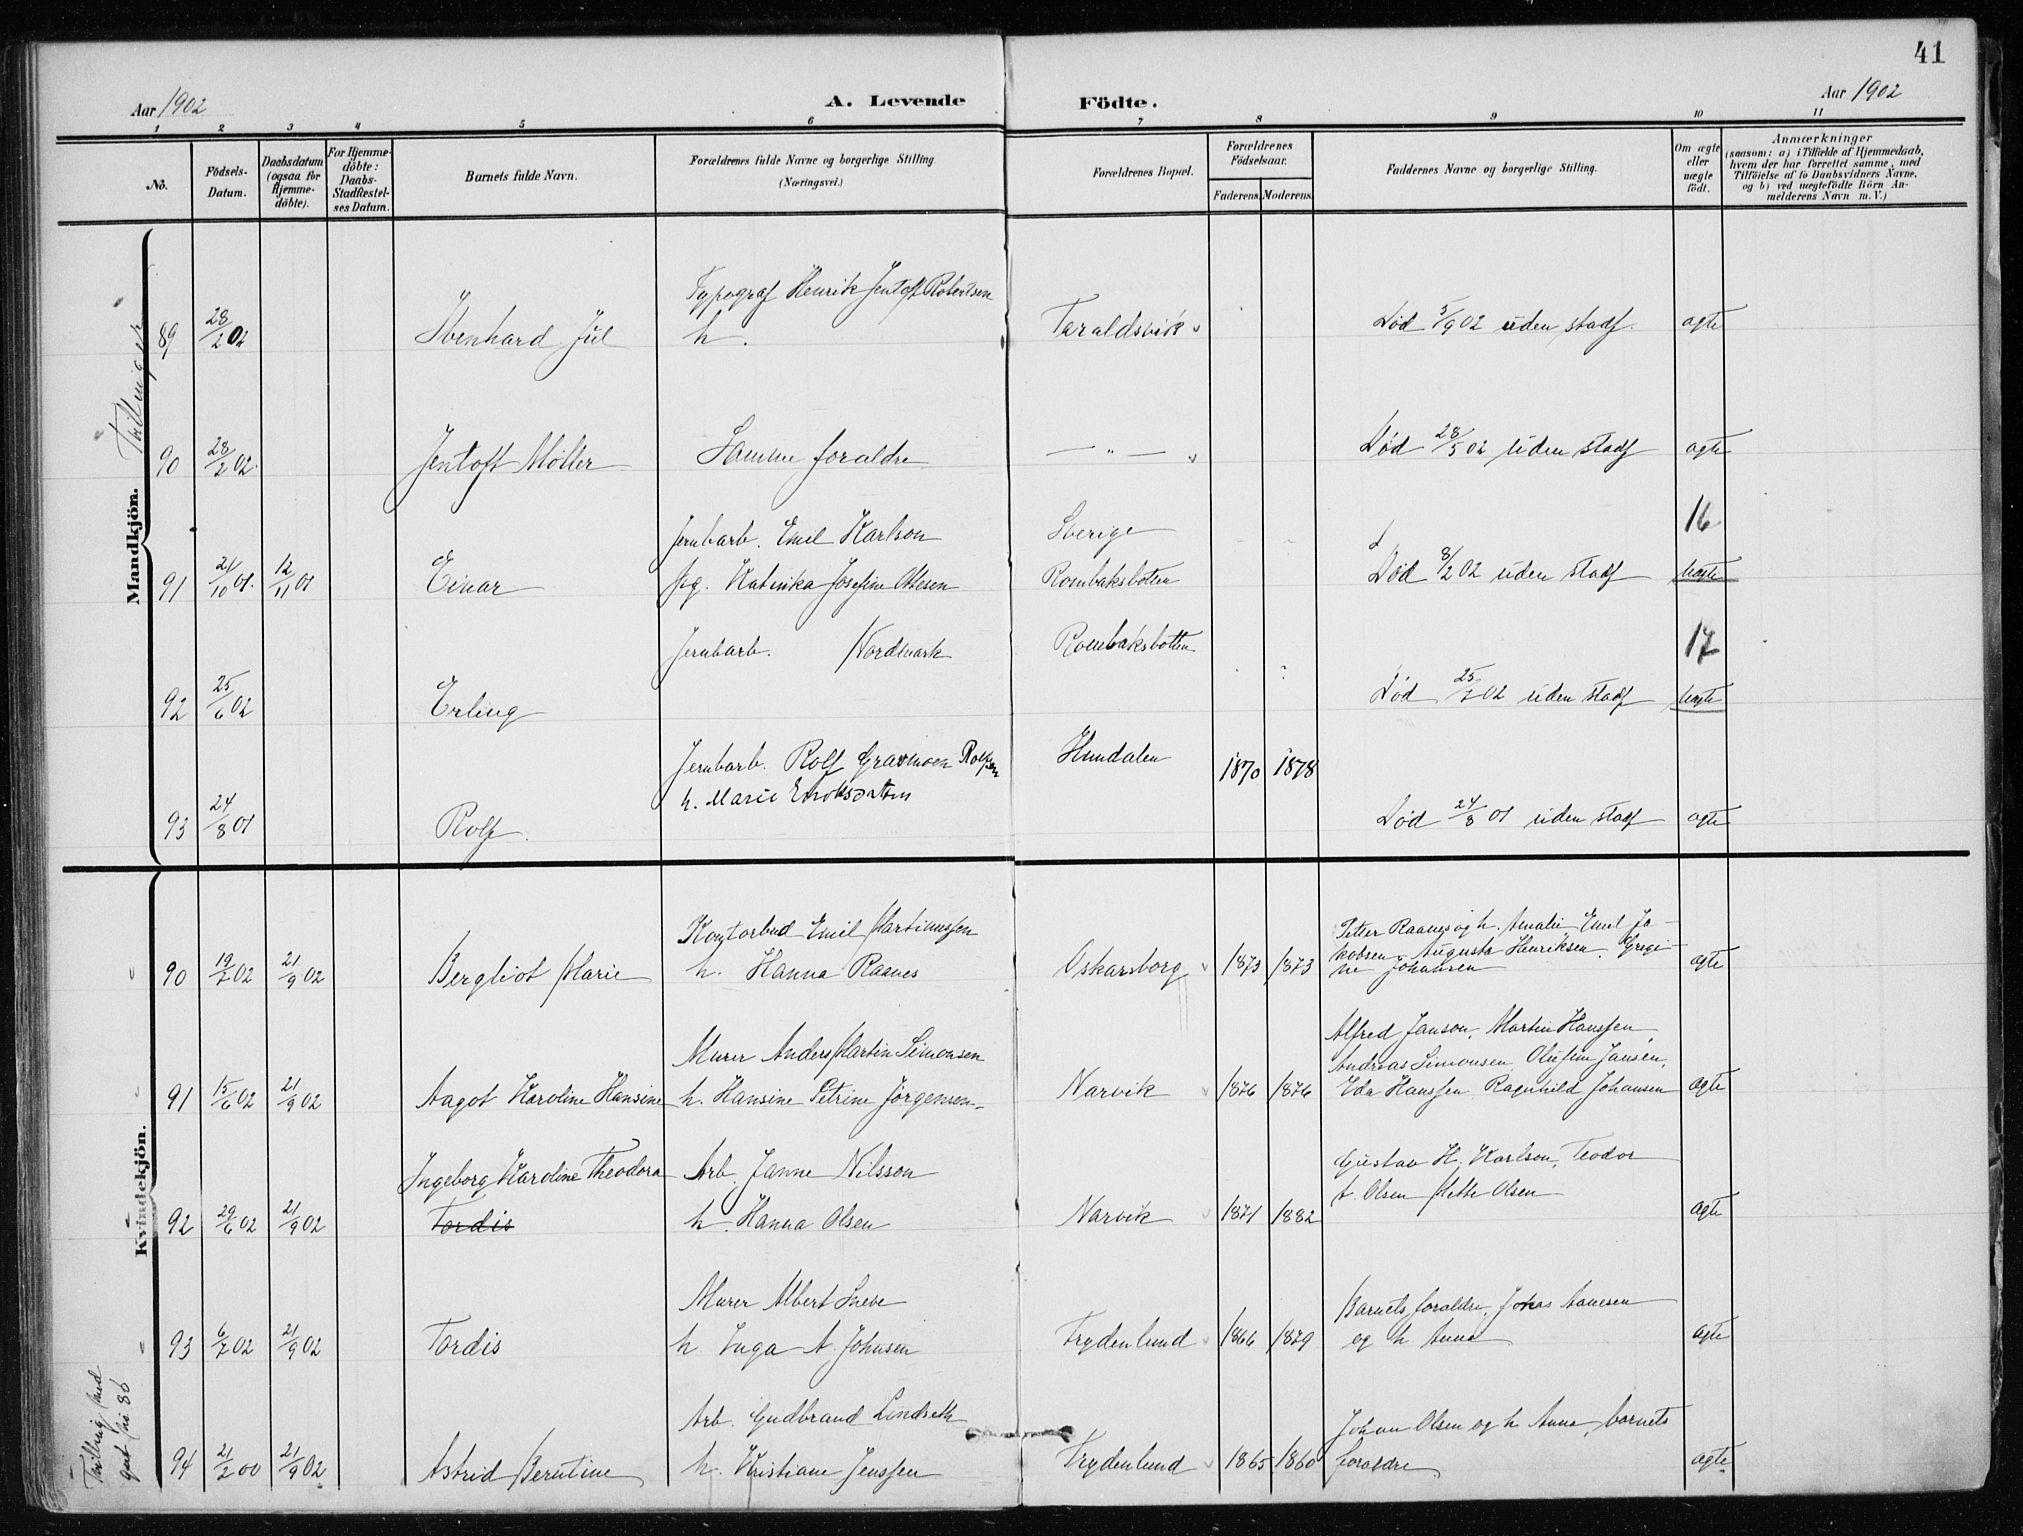 41
Aar 1902 A. Levende Födte. Aar 1902
1 2 3 4 5 6 7 8 9 10 11
No.
Födsels-
Datum.
Daabsdatum
(ogsaa for
Hjemme-
döbte).
For Hjemme-
döbte:
Daabs-
Stadfæstel-
ses Datum.
Barnets fulde Navn.
Forældrenes fulde Navne og borgerlige Stilling.
(Næringsvei.)
Forældrenes Bopæl.
Forældrenes
Födselsaar.
Faderens. Moderens.
Faddernes Navne og borgerlige Stilling.
Om ægte
eller
uægte
födt.
Anmærkninger
(saasom: a) i Tilfælde af Hjemmedaab,
hvem der har forrettet samme, med
Tilföielse af to Daabsvidners Navne,
og b) ved uægtefödte Börn An-
melderens Navn m. V.)
Mandkjön.
Typograf Henrik Jentoft Robertsen
89 28/2 02 Ebenhard Jul h. Taraldsvik Död 5/9 02 uden stadf. ægte
90 28/2 02 Jentoft Møller Samme forældre — " — Död 28/5 02 uden stadf ægte
Jernbarb. Emil Karlson Sverige 16
91 21/10 01. 12/11 01 Einar pg. Katinka Josefine Olesen Rombaksbotten Död 8/2 02 uden stadf uægte
Jernbarb. Nordmark Rombaksbotten 17
92 25/6 02 Erling Död 25/7 02 uden stadf uægte
Jernbarb. Rolf Gravmoen Hundalen 1870 1878
h. Marie
93 24/8 01 Rolf. Död 24/8 01 uden stadf ægte
Kvindekjön.
Kontorbud Emil Martinussen Peter Raanes og h. Amalie Emil Ja-
kobsen Augusta Henriksen. Gregi-
90 19/7 02 21/9 02 Bergliot Marie h. Hanna Raanes Oskarsborg 1873 1873 ne Johansen ægte
Alfred Janson, Martin Hanssen,
Murer Anders Martin Simonsen Andreas Simonsen, Olufine Jansen,
91 15/6 02 21/9 02 Aagot Karoline Hansine h. Hansine Petrine Jørgensen Narvik 1876 1876 Eda Hanssen Ragnhild Johansen ægte
Ingeborg Karoline Theodora Arb. Janne Nilsson Gustav H. Karlson, Teodor
A. Olsen Mette Olsen
92 29/6 02 21/9 02 Tordis h. Hanna Olsen Narvik 1871 1882 ægte
Murer Albert Sneve Barnets forældre, Johas Aanesen
93 6/7 02 21/9 02 Tordis h. Inga A. Johnsen Frydenlund 1866 1879 og h. Anna ægte
Arb. Gudbrand Lindseth Johan Olsen og h Anna, barnets
94 21/2 00 21/9 02 Astrid Berntine h. Kristiane Jenssen Frydenlund 1865 1860 forældre ægte
Tvilling med
gut No 86